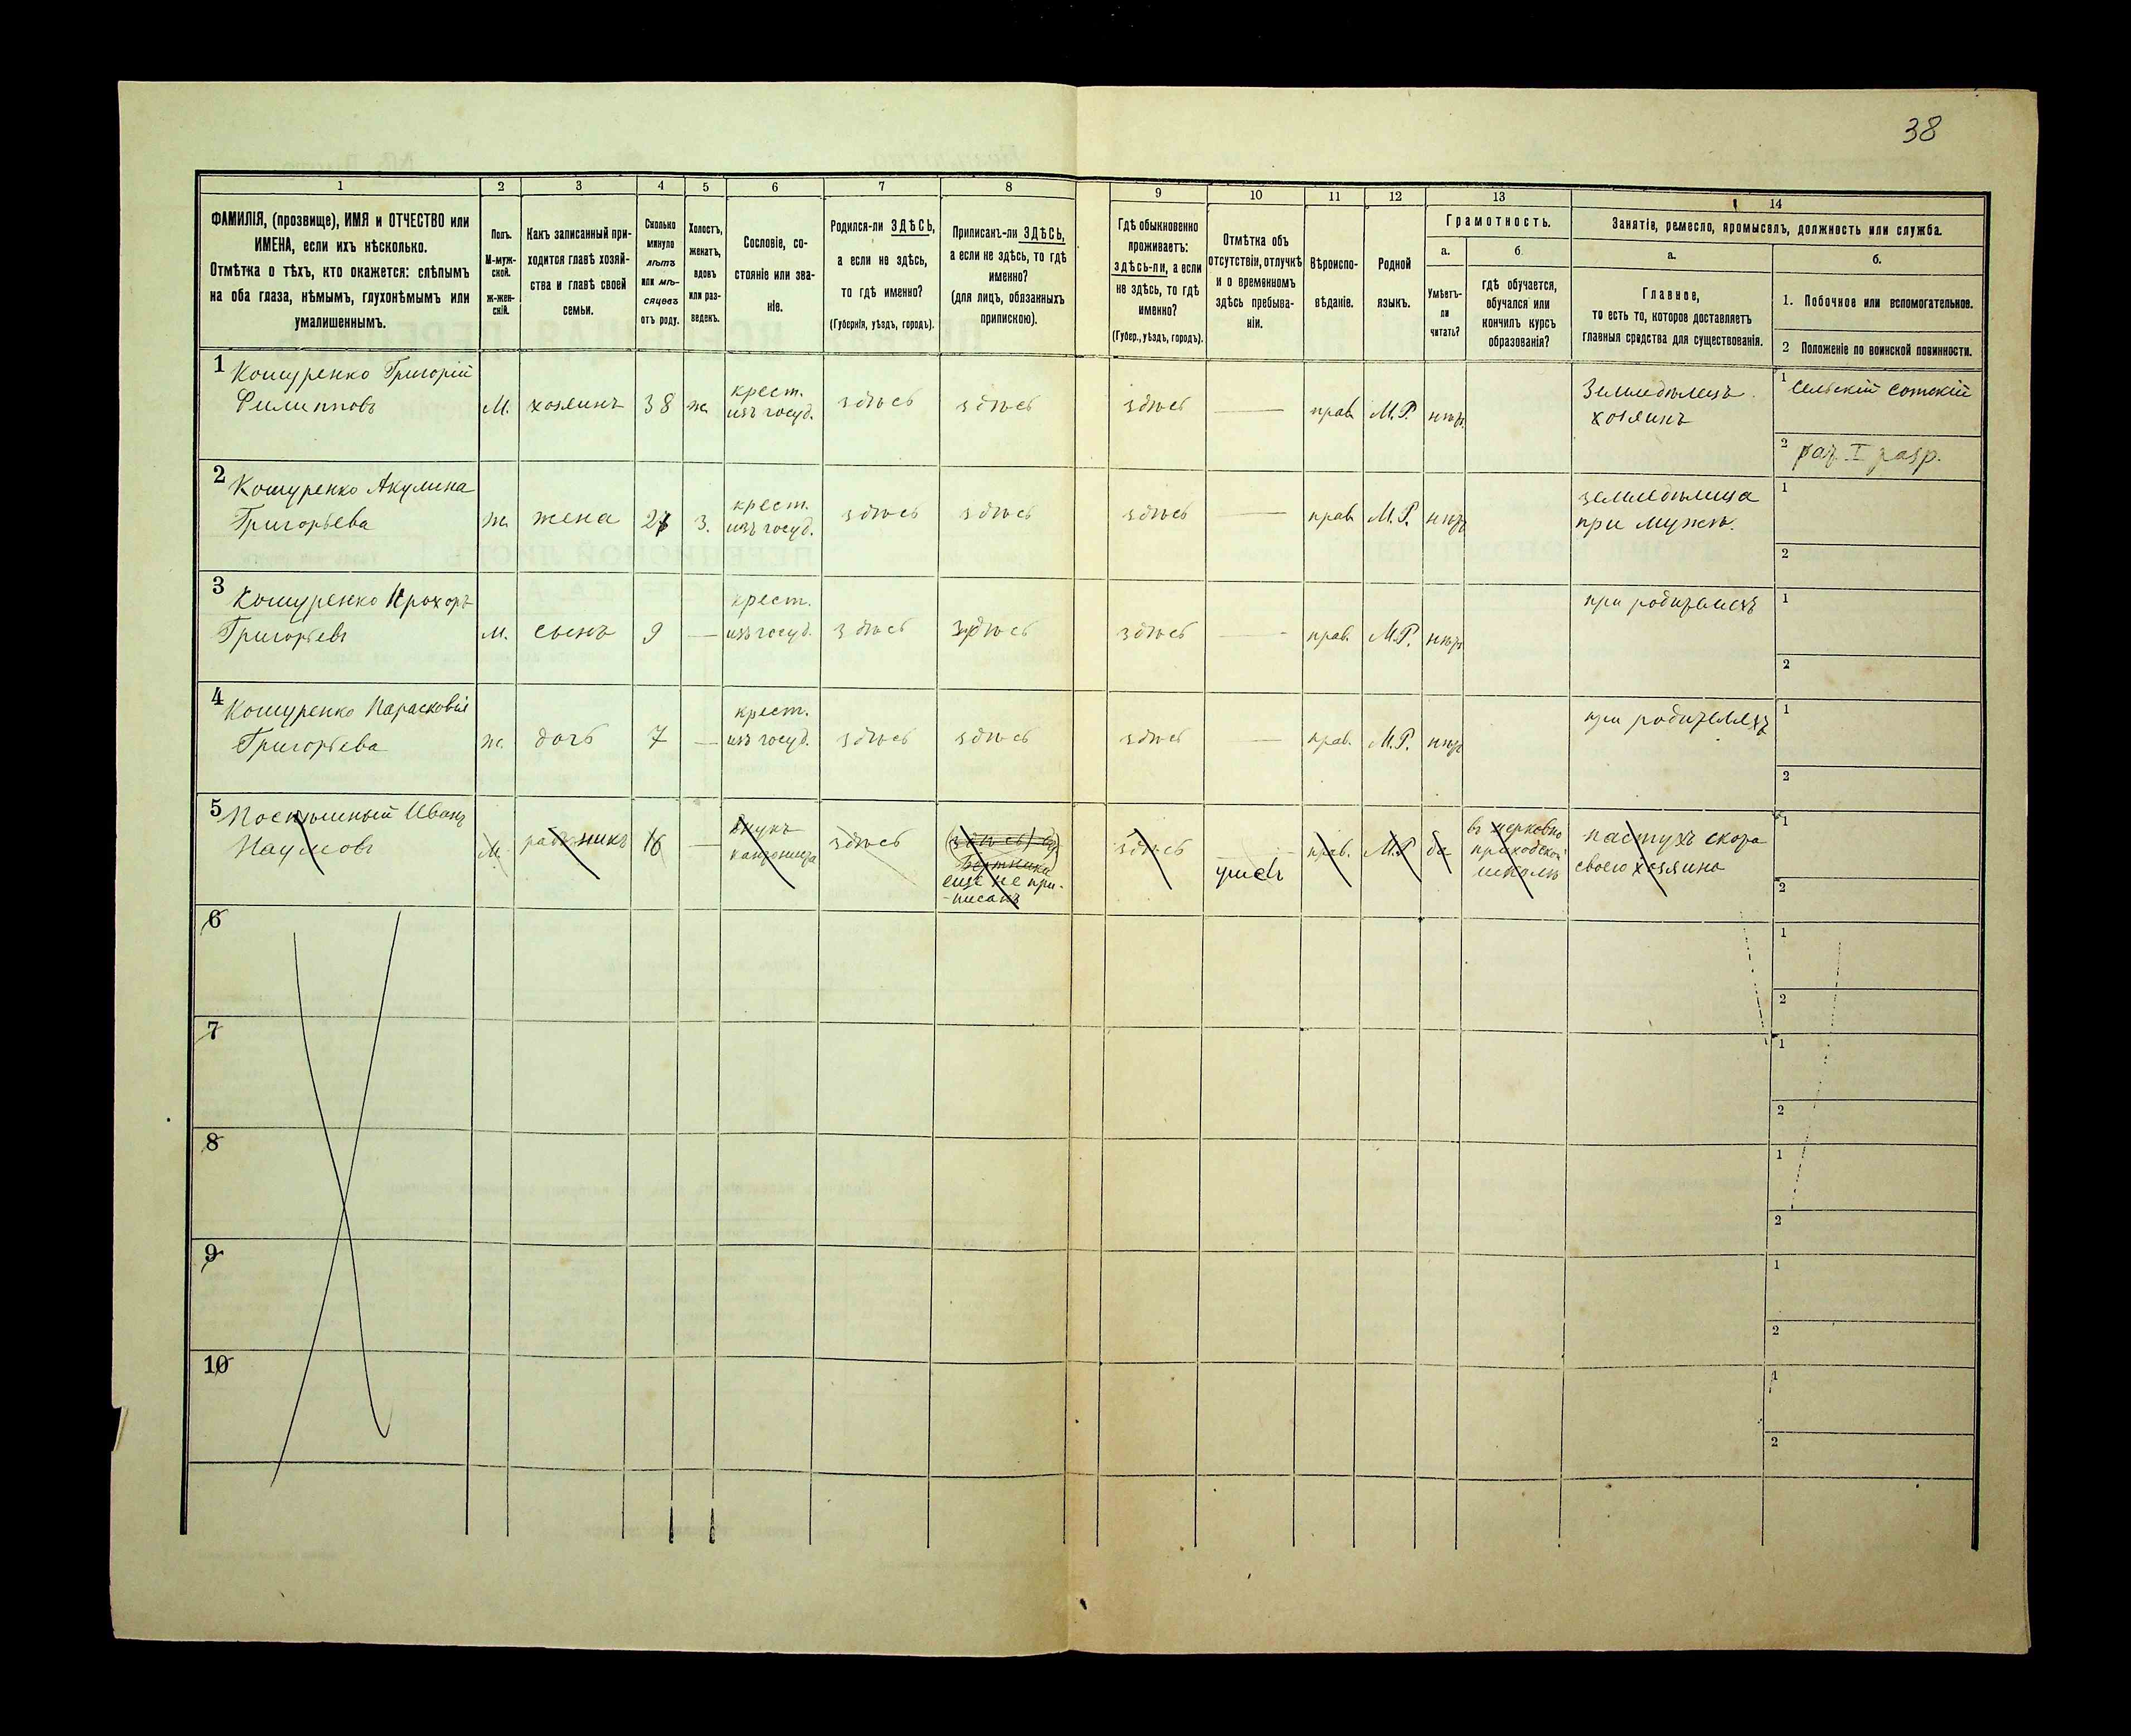 38
1
2
3
4
5
6
7
8
9
10
11
12
13
14
ФАМИЛІЯ, (прозвище), ИМЯ и ОТЧЕСТВО или
ИМЕНА, если ихъ нѣсколько.
Отмѣтка о тѣхъ, кто окажется: слѣпымъ
на оба глаза, нѣмымъ, глухонѣмымъ или
умалишеннымъ.
Полъ.
М-муж-
ской.
ж-жен-
скій.
Какъ записанный при-
ходится главѣ хозяй-
ства и главѣ своей
семьи.
Сколько
минуло
лѣтъ
или мѣ-
сяцевъ
отъ роду.
Холостъ,
женатъ,
вдовъ
или раз-
веденъ.
Сословіе, со-
стояніе или зва-
ніе.
Родился-ли ЗДѢСЬ,
а если не здѣсь,
то гдѣ именно?
(Губернія, уѣздъ, городъ).
Приписанъ-ли ЗДѢСЬ,
а если не здѣсь, то гдѣ
именно?
(для лицъ, обязанныхъ
припискою).
Гдѣ обыкновенно
проживаетъ:
здѣсь-ли, а если
не здѣсь, то гдѣ
именно?
(Губер., уѣздъ, городъ).
Отмѣтка объ
отсутствіи, отлучкѣ
и о временномъ
здѣсь пребыва-
ніи.
Вѣроиспо-
вѣданіе.
Родной
языкъ.
Грамотность.
а.
Умѣетъ-
ли
читать?
б.
гдѣ обучается,
обучался или
кончилъ курсъ
образованія?
Занятія, ремесло, промыселъ, должность или служба.
а.
Главное,
то есть то, которое доставляетъ
главныя средства для существованія.
б.
1. Побочное или вспомогательное.
2 Положеніе по воинской повинности.
1 Кошуренко Григорій
Филипповъ
М. хозяинъ 38 ж. крест.
изъ госуд. здѣсь здѣсь здѣсь — прав. М.Р. нѣтъ
Земледѣлецъ
хозяинъ
1 Сельскій сотскій
2 рат. I разр.
2 Кошуренко Акулина
Григорьева
ж. жена 27 з. крест.
изъ госуд. здѣсь здѣсь здѣсь — прав. М.Р. нѣтъ
земледѣлица
при мужѣ.
1
2
3 Кошуренко Прохоръ
Григорьевъ
м. сынъ 9 — крест.
изъ госуд. здѣсь здѣсь здѣсь — прав. М.Р. нѣтъ
при родителяхъ
1
2
4 Кошуренко Парасковія
Григорьева
ж. дочь 7 — крест.
изъ госуд. здѣсь здѣсь здѣсь — прав. М.Р. нѣтъ
при родителяхъ
1
2
5 Иванъ
Наумовъ
М. работникъ 16 — внукъ
кантониста
здѣсь
(здѣсь)
еще не при-
писанъ
здѣсь
прав. М.Р. да
въ церковно
приходской
школѣ
пастухъ скота
своего хозяина
1
2
6
1
2
7
1
2
8
1
2
9
1
2
10
1
2